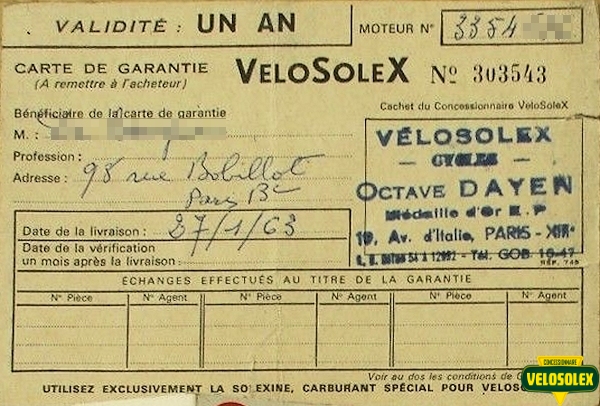 VALIDITÉ : UN AN
MOTEUR No 3354
CARTE DE GARANTIE
(A remettre à l'acheteur)
VELOSOLEX No 303543
Bénéficiaire de la carte de garantie
M. :
Profession :
Adresse : 98 rue Bobillot
Paris 13e
Date de la livraison : 27/1/63
Date de la vérification
un mois après la livraison :
Cachet du Concessionnaire VéloSoleX
VÉLOSOLEX
— CYCLES —
OCTAVE DAYEN
Médaille d'Or E.P
19, Av. d'Italie, PARIS - XIIIe
Tél. GOB. 10-47
RÉF. 745
ÉCHANGES EFFECTUÉS AU TITRE DE LA GARANTIE
No Pièce No Agent No Pièce No Agent No Pièce No Agent
Voir au dos les conditions de
UTILISEZ EXCLUSIVEMENT LA SOLEXINE, CARBURANT SPÉCIAL POUR VELOS
CONCESSIONNAIRE
VELOSOLEX